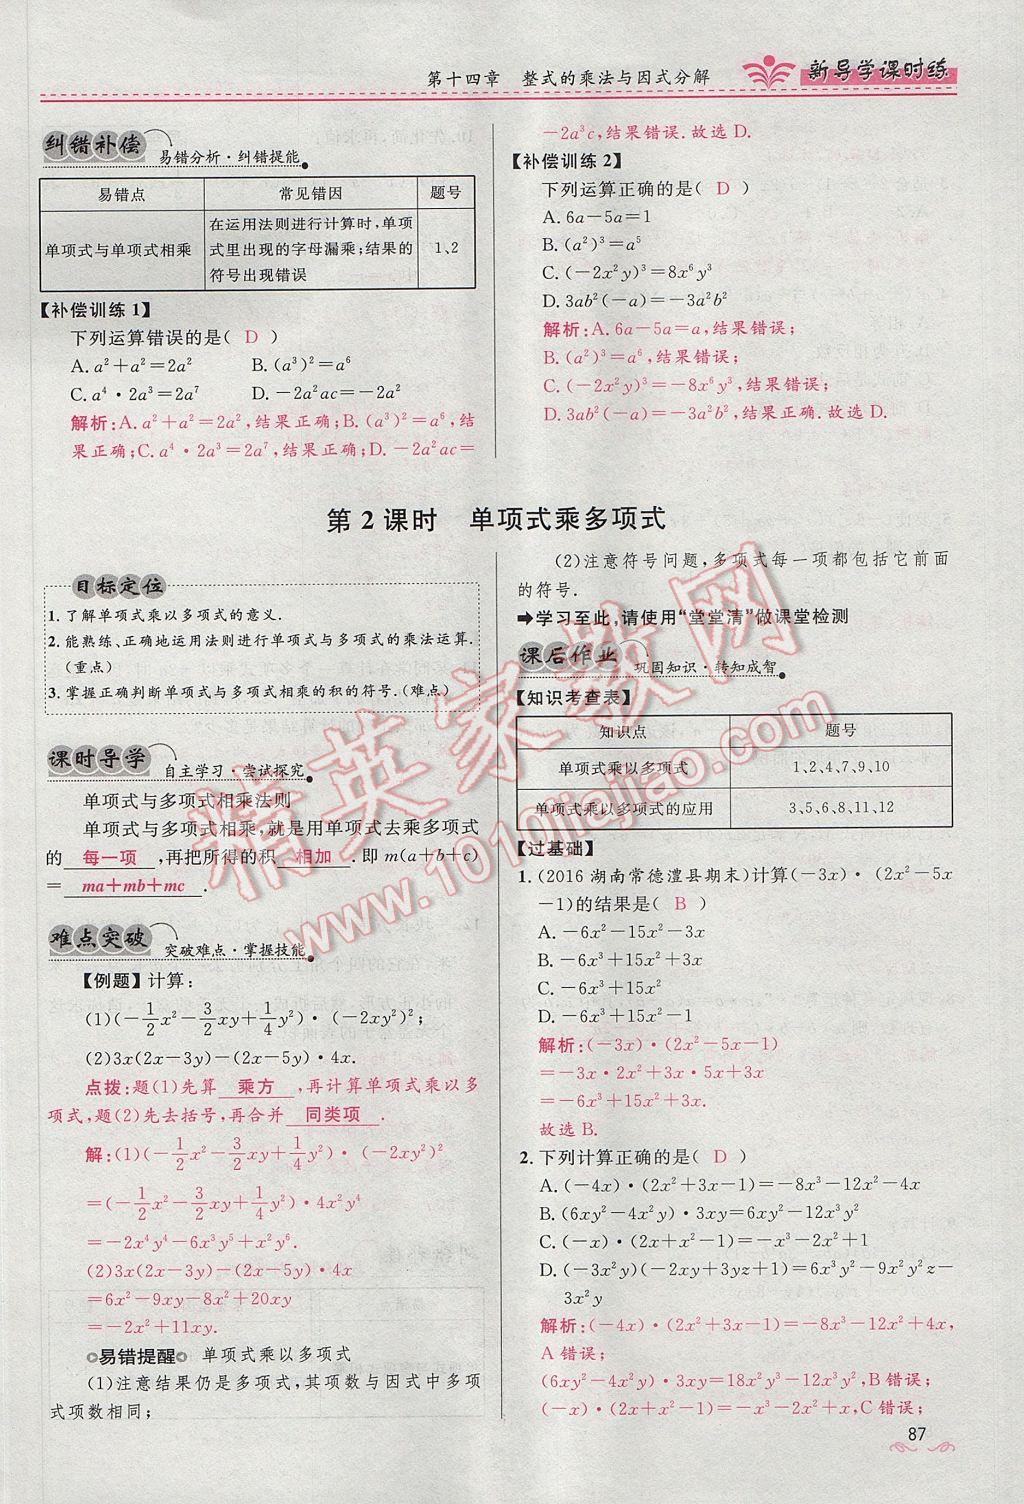 第十四章 整式的乘法与因式分解 新导学课时练
纠错补偿 易错分析·纠错提能
易错点 常见错因 题号
单项式与单项式相乘 在运用法则进行计算时,单项式里出现的字母漏乘;结果的符号出现错误 1、2
【补偿训练1】
下列运算错误的是( D )
A. a²+a²=2a² B. (a³)²=a⁶
C. a⁴·2a³=2a⁷ D. -2a²ac=-2a²
解析:A. a²+a²=2a²,结果正确;B. (a³)²=a⁶,结
果正确;C. a⁴·2a³=2a⁷,结果正确;D. -2a²ac=
-2a³c,结果错误.故选 D.
【补偿训练2】
下列运算正确的是( D )
A. 6a-5a=1
B. (a²)³=a⁵
C. (-2x²y)³=8x⁶y³
D. 3ab²(-a)=-3a²b²
解析:A. 6a-5a=a,结果错误;
B. (a²)³=a⁶,结果错误;
C. (-2x²y)³=-8x⁶y³,结果错误;
D. 3ab²(-a)=-3a²b²,结果正确.故选 D.
第2课时 单项式乘多项式
目标定位
1. 了解单项式乘以多项式的意义.
2. 能熟练、正确地运用法则进行单项式与多项式的乘法运算.
(重点)
3. 掌握正确判断单项式与多项式相乘的积的符号.(难点)
课时导学 自主学习·尝试探究
单项式与多项式相乘法则
单项式与多项式相乘,就是用单项式去乘多项式
的 每一项 ,再把所得的积 相加 .即 m(a+b+c)
= ma+mb+mc .
难点突破 突破难点·掌握技能
【例题】计算:
(1)(-1/2x²-3/2xy+1/4y²)·(-2xy²)²;
(2)3x(2x-3y)-(2x-5y)·4x.
点拨:题(1)先算 乘方 ,再计算单项式乘以多
项式,题(2)先去括号,再合并 同类项 .
解:(1)(-1/2x²-3/2xy+1/4y²)·(-2xy²)²
=(-1/2x²-3/2xy+1/4y²)·4x²y⁴
=-2x⁴y⁴-6x³y⁵+x²y⁶.
(2)3x(2x-3y)-(2x-5y)·4x
=6x²-9xy-8x²+20xy
=-2x²+11xy.
易错提醒 单项式乘以多项式
(1)注意结果仍是多项式,其项数与因式中多项
式项数相同;
(2)注意符号问题,多项式每一项都包括它前面
的符号.
➡学习至此,请使用“堂堂清”做课堂检测
课后作业 巩固知识·转知成智
【知识考查表】
知识点 题号
单项式乘以多项式 1、2、4、7、9、10
单项式乘以多项式的应用 3、5、6、8、11、12
【过基础】
1. (2016 湖南常德澧县期末)计算(-3x)·(2x²-5x
-1)的结果是( B )
A. -6x²-15x²-3x
B. -6x³+15x²+3x
C. -6x³+15x²
D. -6x³+15x²-1
解析:(-3x)·(2x²-5x-1)
=-3x·2x²+3x·5x+3x
=-6x³+15x²+3x.
故选 B.
2. 下列计算正确的是( D )
A. (-4x)·(2x²+3x-1)=-8x³-12x²-4x
B. (6xy²-4x²y)·3xy=6xy²-12x³y²
C. (-x)·(2x+x²-1)=-x³-2x²+1
D. (-3x²y)(-2xy+3yz+1)=6x³y²-9x²y²z-
3x²y
解析:(-4x)·(2x²+3x-1)=-8x³-12x²+4x,
A 错误;
(6xy²-4x²y)·3xy=18x²y³-12x³y²,B 错误;
(-x)·(2x+x²-1)=-x³-2x²+x,C 错误;
87
精英家教网
www.1010jiajiao.com